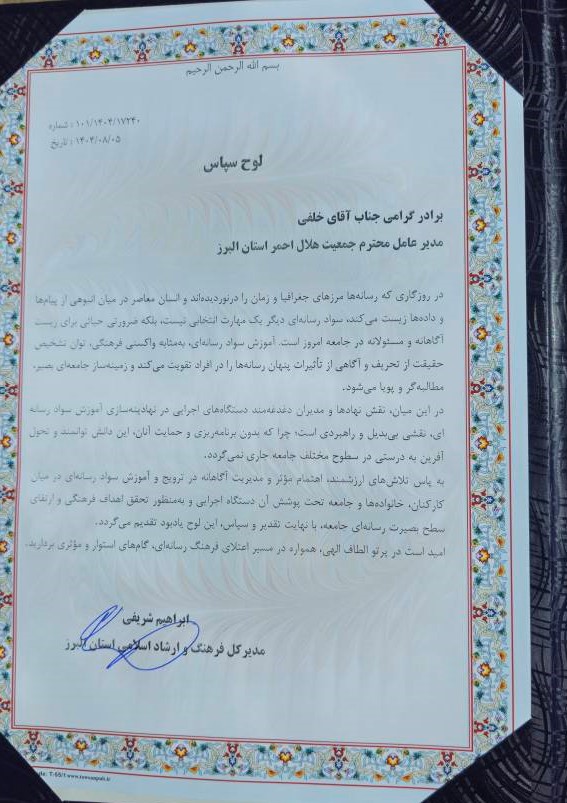 بسم الله الرحمن الرحیم
شماره : ۱۰۱/۱۴۰۴/۱۷۲۴۰
تاریخ : ۱۴۰۴/۰۸/۰۵
لوح سپاس
برادر گرامی جناب آقای خلفی
مدیر عامل محترم جمعیت هلال احمر استان البرز
در روزگاری که رسانه‌ها مرزهای جغرافیا و زمان را درنوردیده‌اند و انسان معاصر در میان انبوهی از پیام‌ها
و داده‌ها زیست می‌کند، سواد رسانه‌ای دیگر یک مهارت انتخابی نیست، بلکه ضرورتی حیاتی برای زیست
آگاهانه و مسئولانه در جامعه امروز است. آموزش سواد رسانه‌ای، به‌مثابه واکسنی فرهنگی، توان تشخیص
حقیقت از تحریف و آگاهی از تأثیرات پنهان رسانه‌ها را در افراد تقویت می‌کند و زمینه‌ساز جامعه‌ای بصیر،
مطالبه‌گر و پویا می‌شود.
در این میان، نقش نهادها و مدیران دغدغه‌مند دستگاه‌های اجرایی در نهادینه‌سازی آموزش سواد رسانه
ای، نقشی بی‌بدیل و راهبردی است؛ چرا که بدون برنامه‌ریزی و حمایت آنان، این دانش توانمند و تحول
آفرین به درستی در سطوح مختلف جامعه جاری نمی‌گردد.
به پاس تلاش‌های ارزشمند، اهتمام مؤثر و مدیریت آگاهانه در ترویج و آموزش سواد رسانه‌ای در میان
کارکنان، خانواده‌ها و جامعه تحت پوشش آن دستگاه اجرایی و به‌منظور تحقق اهداف فرهنگی و ارتقای
سطح بصیرت رسانه‌ای جامعه، با نهایت تقدیر و سپاس، این لوح یادبود تقدیم می‌گردد.
امید است در پرتو الطاف الهی، همواره در مسیر اعتلای فرهنگ رسانه‌ای، گام‌های استوار و مؤثری بردارید.
ابراهیم شریفی
مدیرکل فرهنگ و ارشاد اسلامی استان البرز
T-65/1